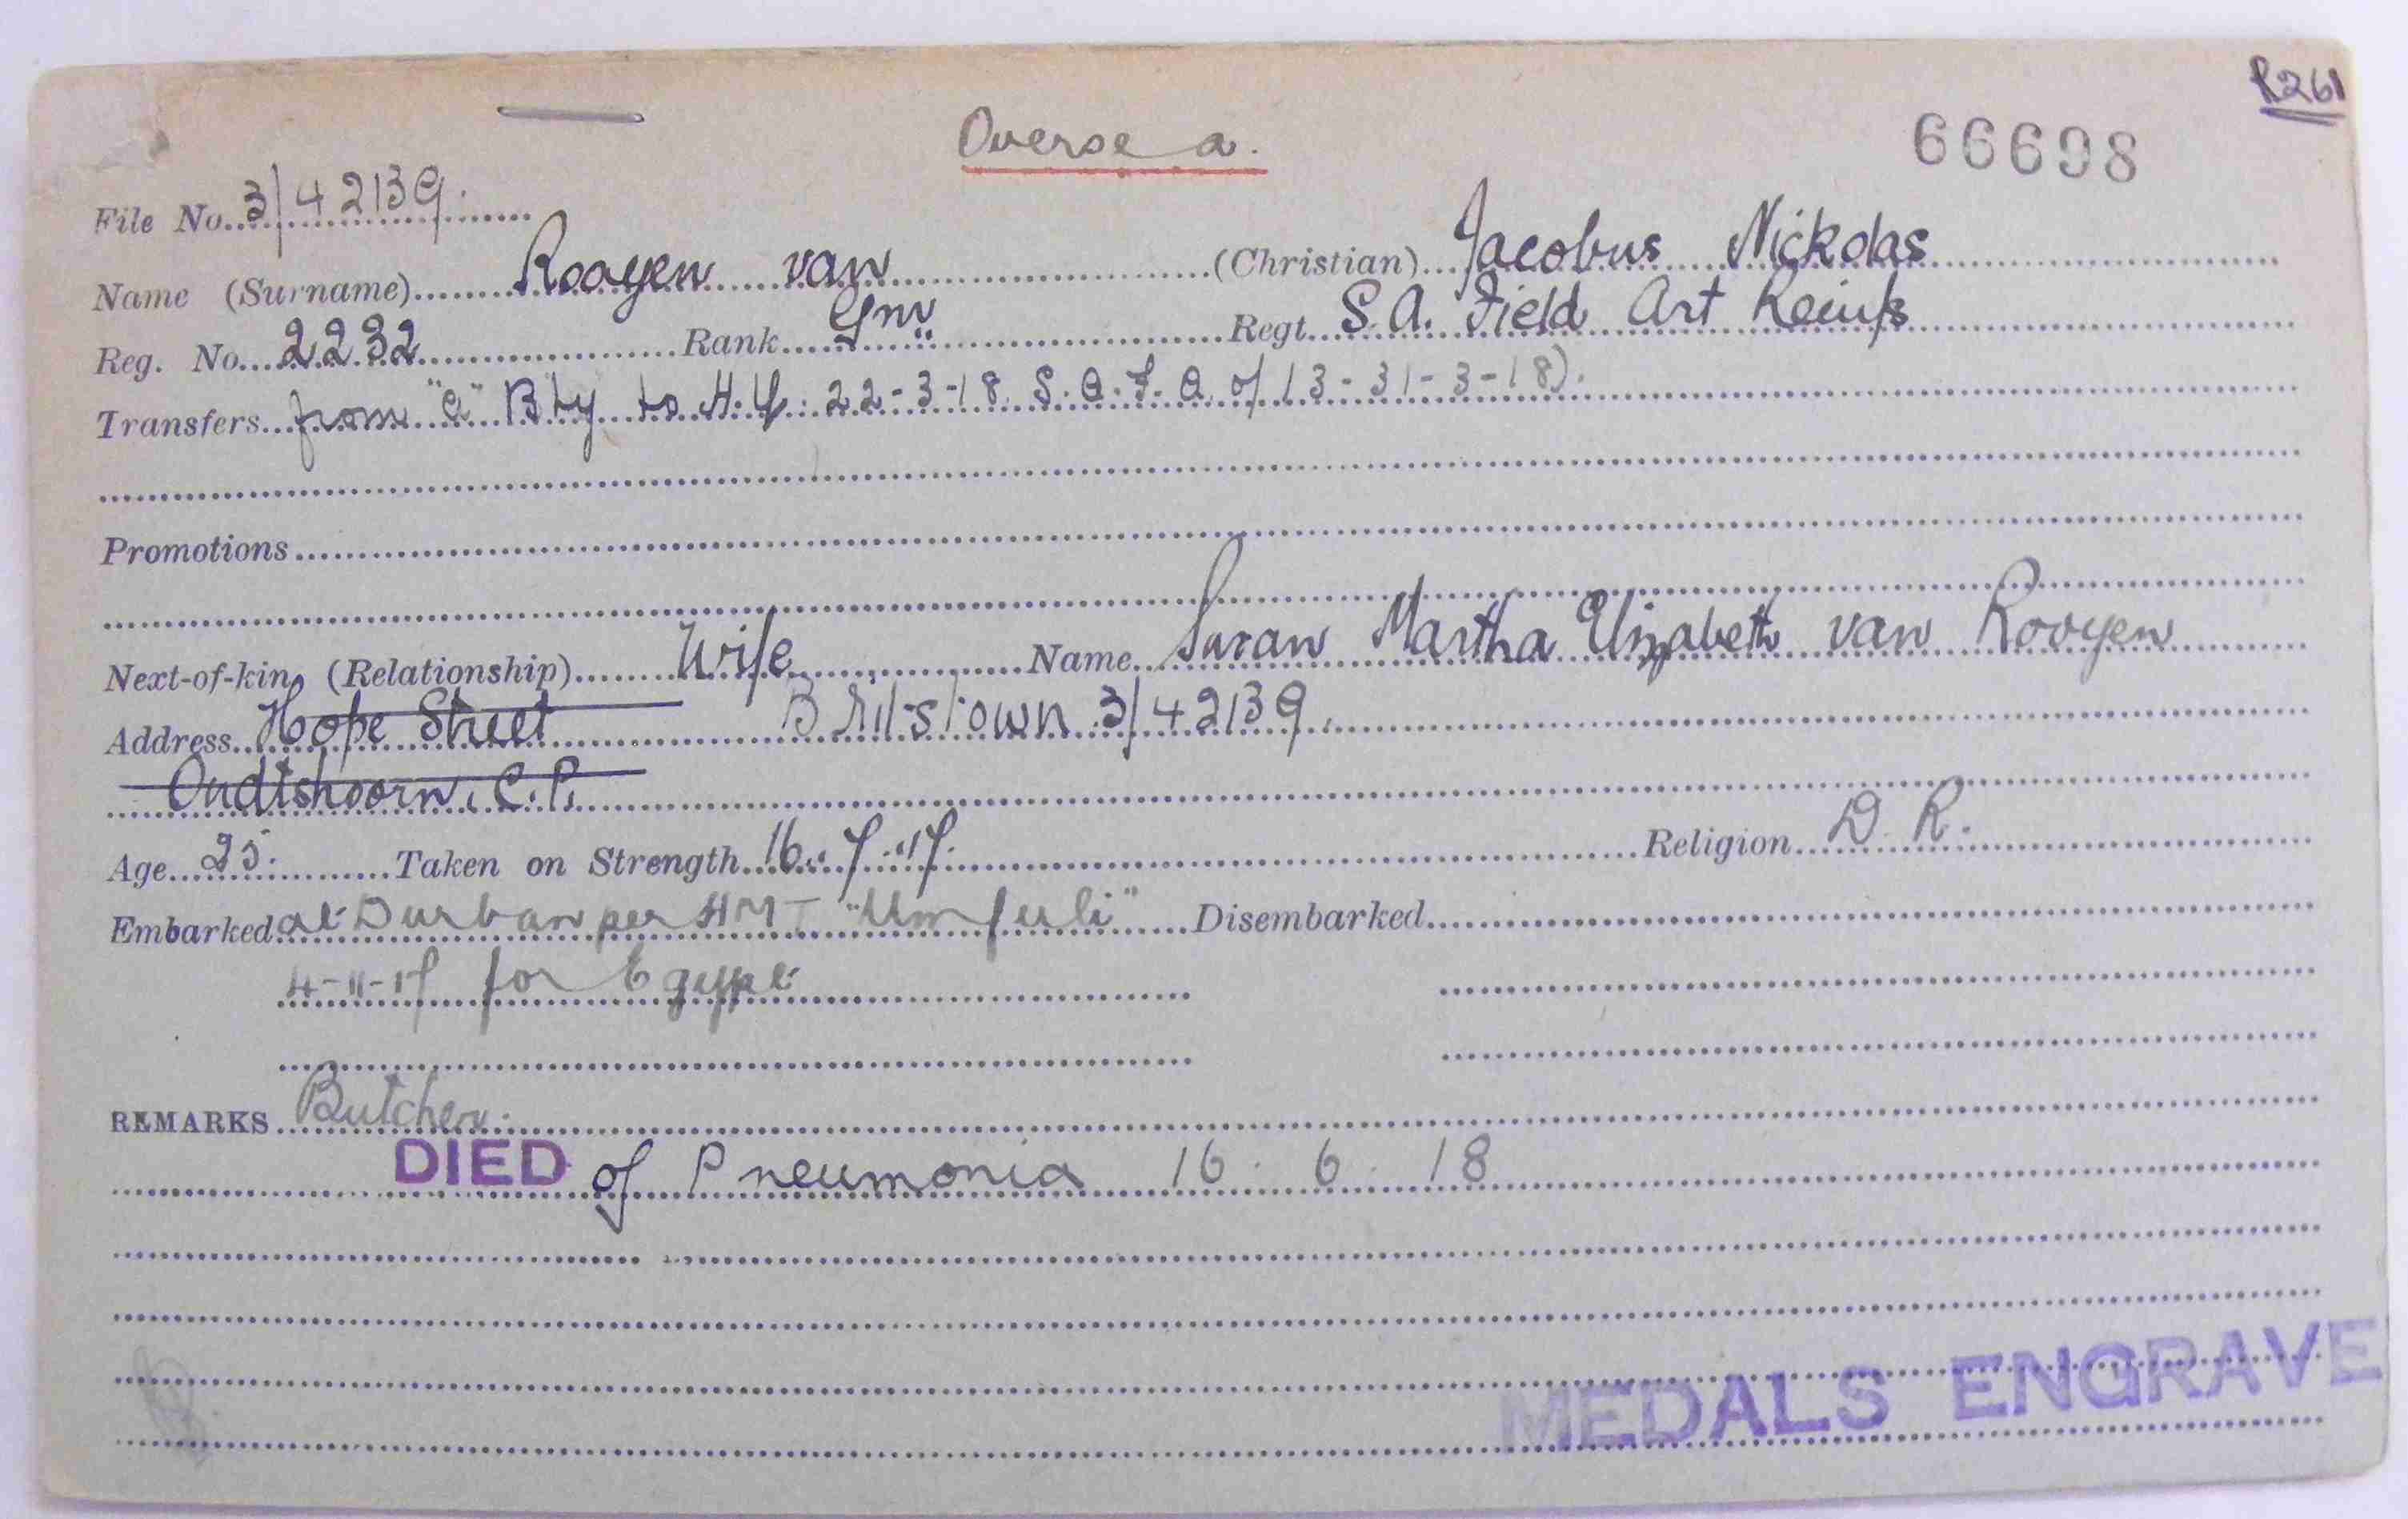 R261
Oversea.
66698
File No. 3/42139.
Name (Surname) Rooyen van (Christian) Jacobus Nickolas
Reg. No. 2232 Rank Gnr Regt. S.A. Field Art Reinfs
Transfers from "C" Bty to H.Q. 22-3-18 S.A.F.A. of 13-31-3-18).
Promotions
Next-of-kin (Relationship) Wife Name Saran Martha Elizabeth van Rooyen
Address Hope Street Britstown 3/42139.
Oudtshoorn, C.P.
Age 25. Taken on Strength 16.7.17. Religion D.R.
Embarked at Durban per HMT "Umfuli" Disembarked
4-11-17 for Egypt
REMARKS Butcher.
DIED of Pneumonia 16.6.18
MEDALS ENGRAVE